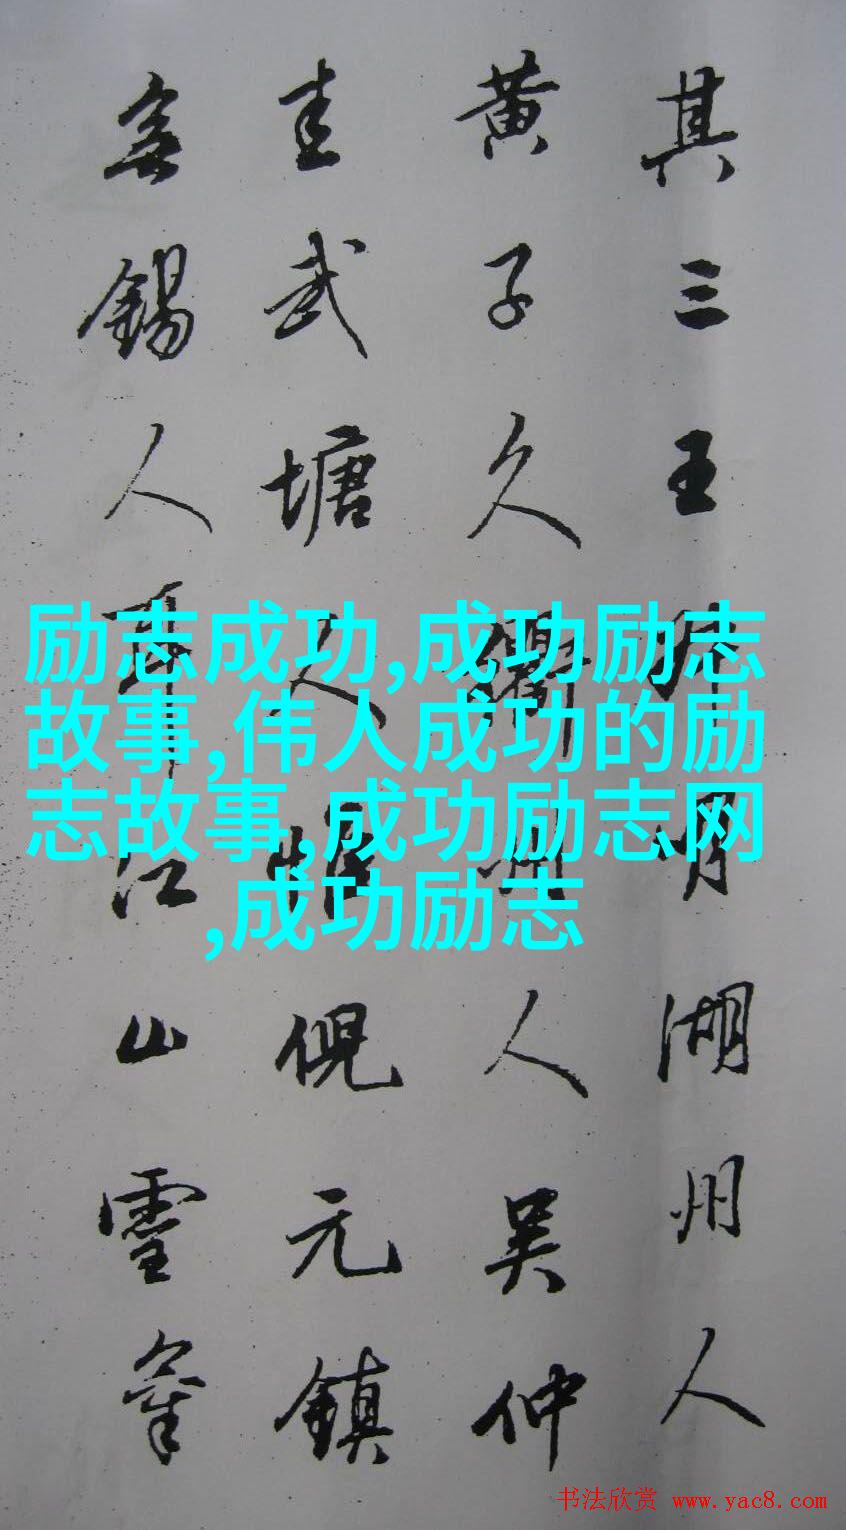 其三王叔明湖州人
黄子久衢州人吴仲
圭武塘人惟倪元鎮
無錫人耳江山靈氣
励志成功,成功励志
故事,伟人成功的励
志故事,成功励志网
,成功励志
书法欣赏 www.yac8.com